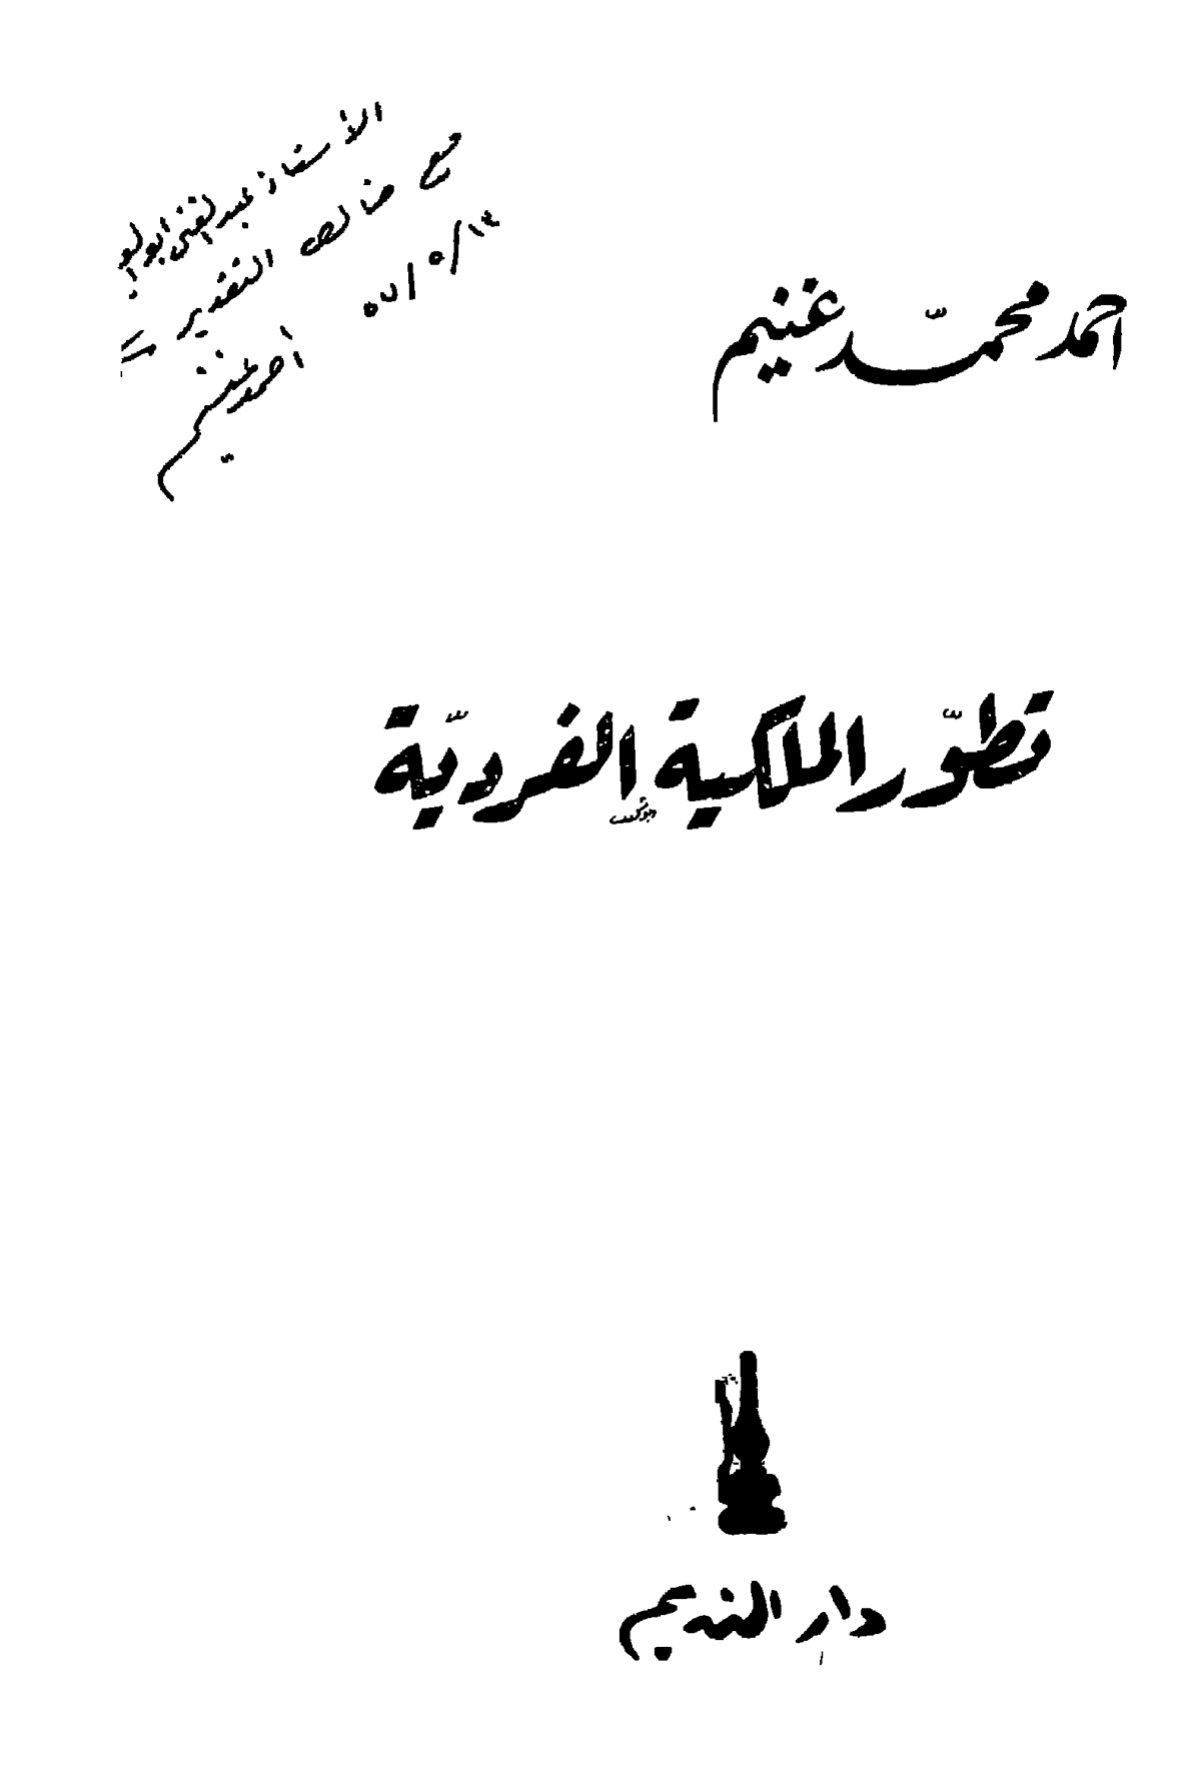 الأستاذ عبد الغنى أبو
مع خالص التقدير
١٣ / ٥ / ٥٧
أحمد غنيم
احمد محمّد غنيم
تطوّر الملكية الفرديّة
دار النديم